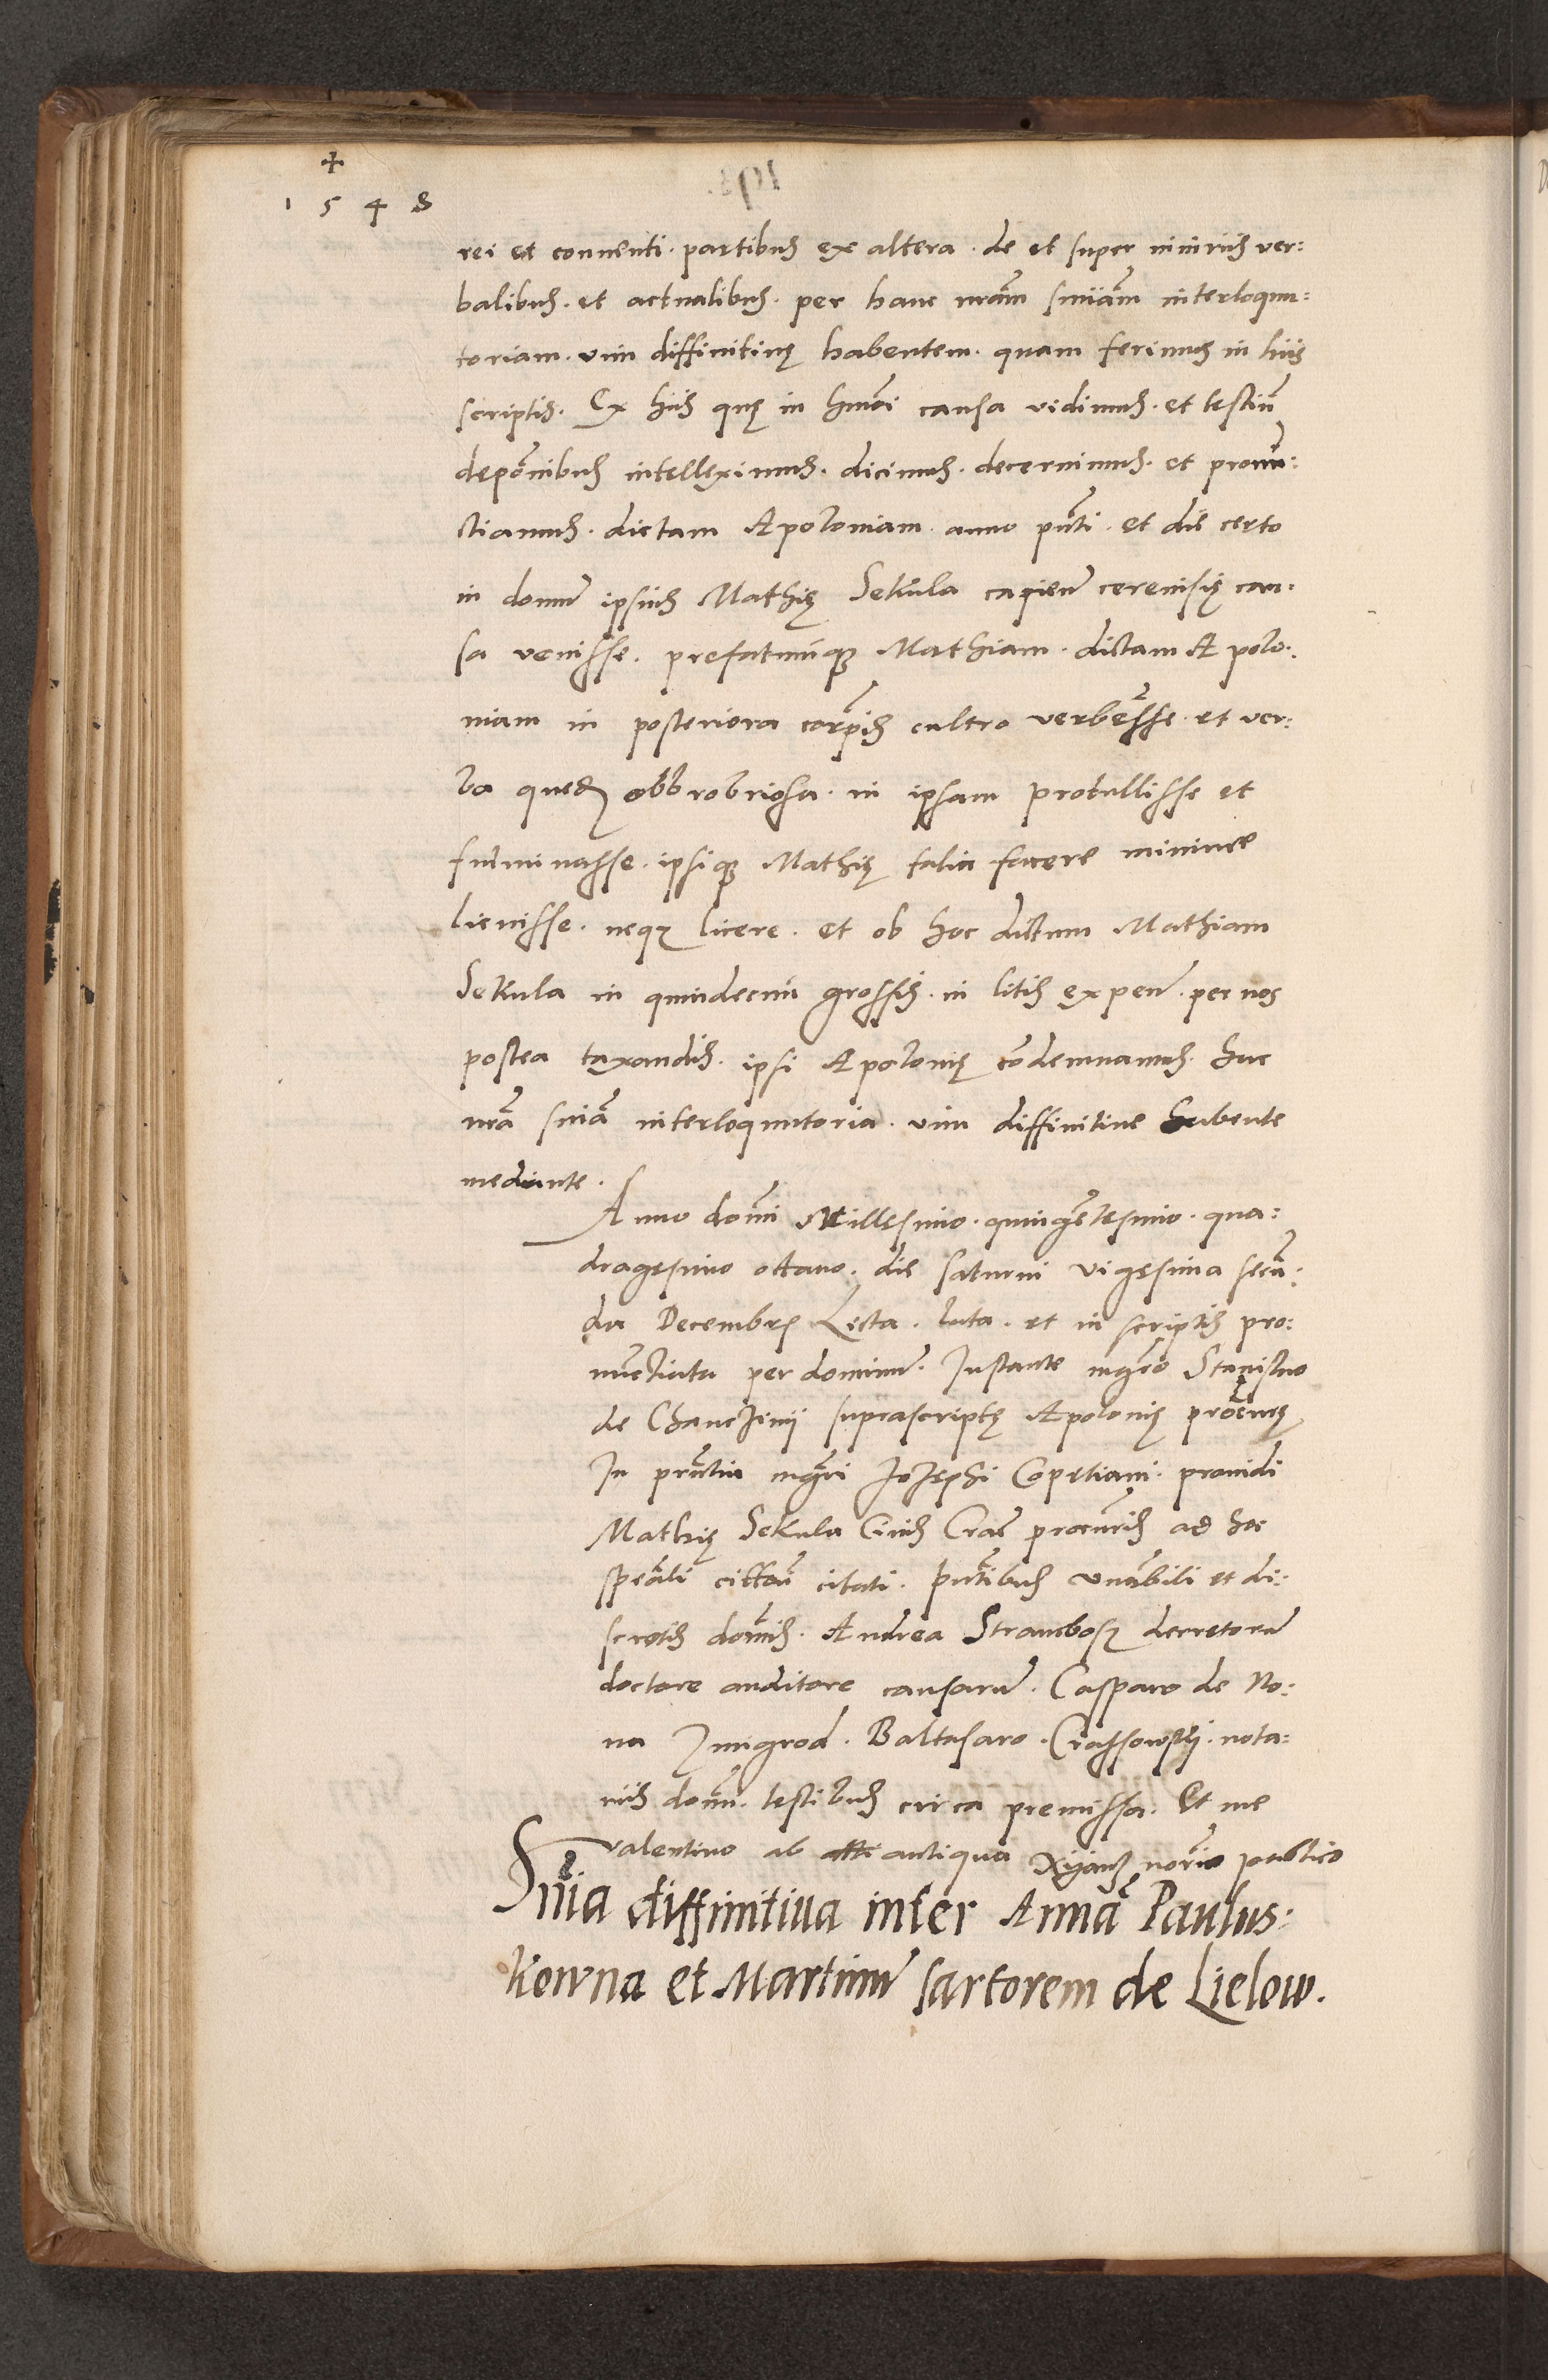 +
1 5 4 8
rei et conuenti. partibus ex altera. de et super iniuriis ver:
balibus. et actualibus. per hanc nram sniam interloqu:
toriam. vim diffinitiuę habentem. quam ferimus in hiis
scriptis. Ex hiis quę in hmoi causa vidimus. et testiu
deponibus intelleximus. dicimus. decernimus. et pronu:
ctiamus. dictam Apoloniam. anno pnti. et die certo
in domu ipsius Mathię Sekula capien cereuisię cau:
sa venisse. prefatumque Mathiam. dictam Apolo:
niam in posteriora corpis cultro verbesse. et ver:
ba qued obbrobriosa. in ipsam protullisse et
fulminasse. ipsique Mathię talia facere minime
licuisse. neque licere. et ob hoc dictum Mathiam
Sekula in quindecim grossis. in litis expen. per nos
postea taxandis. ipsi Apolonię codemnamus. hac
nra snia interloquutoria. vim diffinitiue habente
mediante.
Anno domi Millesimo. quingetesimo. qua:
dragesimo octauo. die saturni vigesima secu:
da Decembris Lecta. lata. et in scriptis pro:
nuctiata per dominu. Instante mgro Stanislao
de suprascriptę Apolonię
In pntia mgri Josephi prouidi
Mathię Sekula Ciuis Crac procuris ad hoc
speali cittau citati. pntibus vnabili et di:
scretis domis. Andrea decretoru
doctore auditore causaru. Casparo de No:
ua Baltasaro. nota:
riis domi. testibus circa premissa. Et me
valentino ab antiqua norio publico
Snia diffinitiua inter Anna Paulus:
kowna et Martinu sartorem de Lielow.